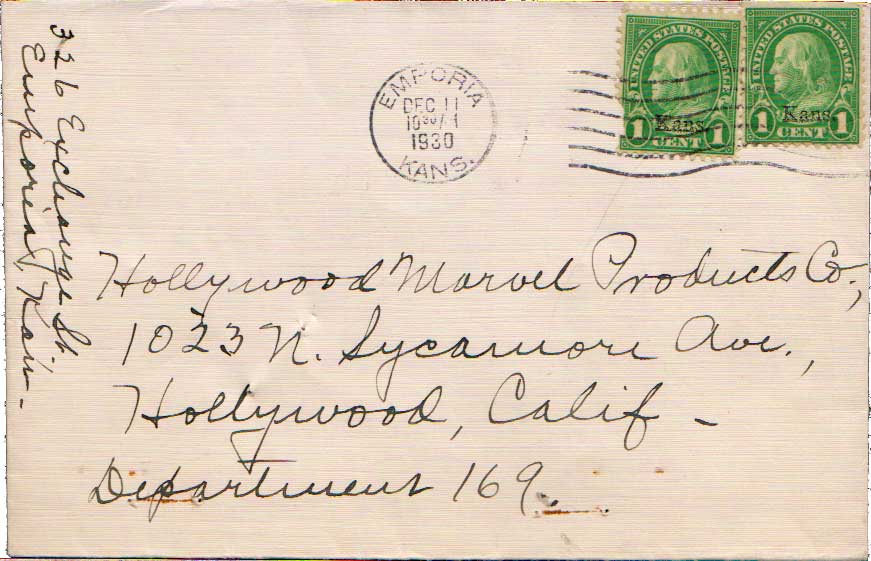 326 Exchange St.
Emporia, Kans.
EMPORIA
DEC 11
10 30 AM
1930
KANS.
UNITED STATES POSTAGE
Kans.
1 CENT 1
UNITED STATES POSTAGE
Kans.
1 CENT 1
Hollywood Marvel Products Co.,
1023 N. Sycamore Ave.,
Hollywood, Calif -
Department 169.